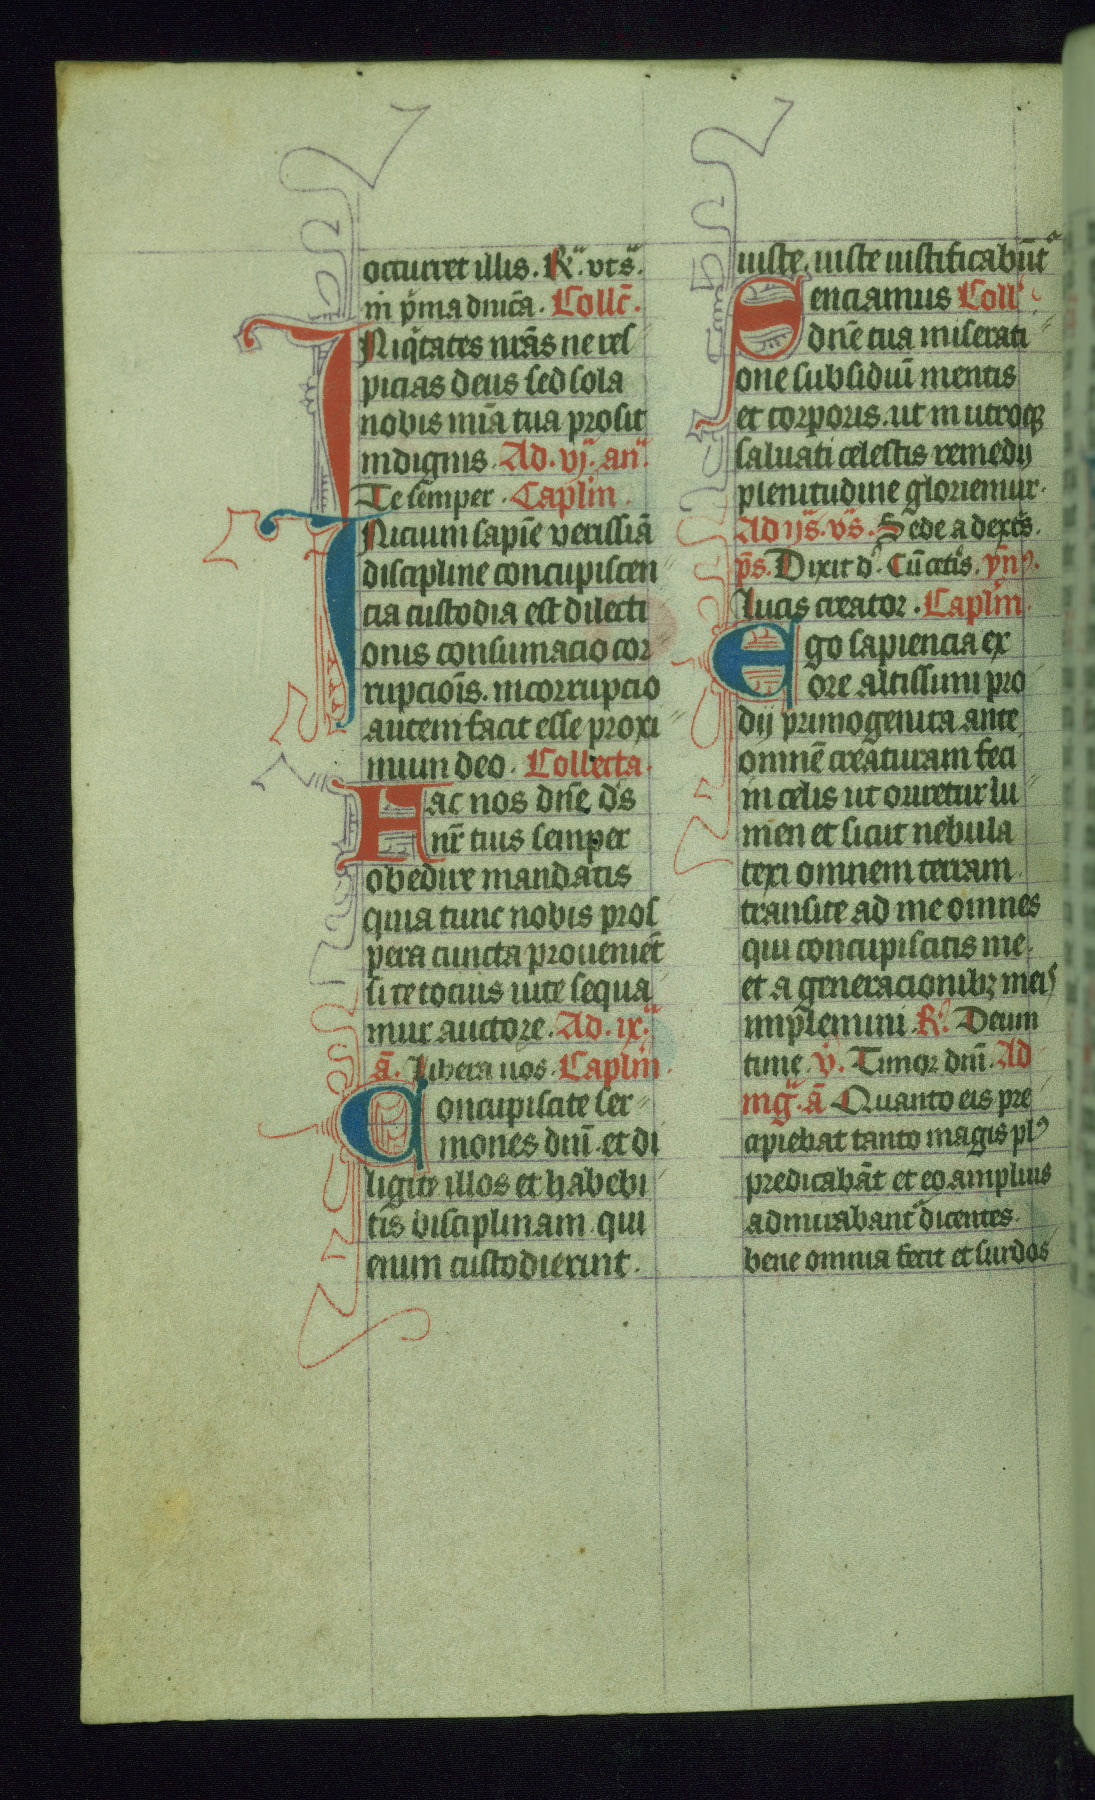 occurret illis. R̃. vts̃.
in p̃ma dnĩca. Collc̃.
INiq̃tates nrãs ne res
picias deus sed sola
nobis mĩa tua prosit
indignis. Ad. vj. an̄.
Te semper. Caplm̃.
INicium sapĩe verissiã
discipline concupiscen
cia custodia est dilecti
onis consumacio cor
rupcioĩs. incorrupcio
autem facit esse proxi
mum deo. Collecta.
Hac nos dñe. ds̃
nr̃ tuis semper
obedire mandatis
quia tunc nobis pros
pera cuncta proueniẽt
si te tocius uite sequa
mur auctore. Ad. ix.
ã. Libera nos. Caplm̃.
Concupiscite ser
mones dnĩ. et di
ligite illos et habebi
tis disciplinam. qui
enim custodierint.
iuste. iuste iustificabũt᷑
Senciamus Coll̃
dñe tua miserati
one subsidiũ mentis
et corporis. ut in utroqꝫ
saluati celestis remedij
plenitudine gloriemur.
Ad ijs̃. vs̃. Sede a dext̃s.
p̃s. Dixit d̃. Cũ cet̃is. ym̃.
Lucis creator. Caplm̃.
Ego sapiencia ex
ore altissimi pro
dij primogenita ante
omnẽ creaturam feci
in celis ut oriretur lu
men et sicut nebula
texi omnem terram
transite ad me omnes
qui concupiscitis me.
et a generacionibꝫ meis
implemini. R̃. Deum
time. ṽ. Timor dnĩ. Ad
mg̃. ã Quanto eis pre
cipiebat tanto magis plꝰ
predicabãt et eo amplius
admirabant᷑ dicentes.
bene omnia fecit et surdos